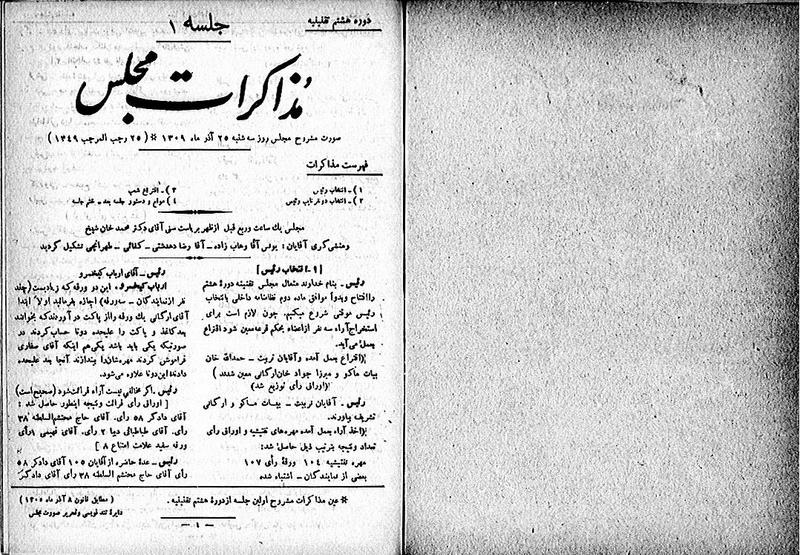 دورهٔ هشتم تقنینیه
جلسه ۱
مذاکرات مجلس
صورت مشروح مجلس روز سه شنبه ۲۵ آذر ماه ۱۳۰۹ * (۲۵ رجب المرجب ۱۳۴۹)
فهرست مذاکرات
۱) ـ انتخاب رئیس
۲) ـ انتخاب دو نفر نایب رئیس
۳) ـ اقتراع شعب
۴) موقع و دستور جلسه بعد ـ ختم جلسه
مجلس یک ساعت و ربع قبل از ظهر بریاست سنی آقای دکتر محمد خان شیخ
ومنشی گری آقایان: یونس آقا وهاب زاده ـ آقا رضا دهدشتی ـ کفائی ـ طهرانچی تشکیل گردید
[۱ ـ انتخاب رئیس]
رئیس ـ بنام خداوند متعال مجلس تقنینیه دورهٔ هشتم
را افتتاح وبدواً موافق ماده دوم نظامنامه داخلی بانتخاب
رئیس موقتی شروع میکنیم. چون لازم است برای
استخراج آراء سه نفر از اعضاء بحکم قرعه معین شود اقتراع
بعمل می‌آید.
(اقتراع بعمل آمده و آقایان تربیت ـ حمدالله خان
بیات ماکو و میرزا جواد خان ارکانی معین شدند)
(اوراق رأی توزیع شد)
رئیس ـ آقایان تربیت ـ بیات ماکو و ارگانی
تشریف بیاورند.
(اخذ آراء بعمل آمده مهره‌های تفتیشیه و اوراق رأی
تعداد ونتیجه بترتیب ذیل حاصل شد:
مهره تفتیشیه ۱۰۴ ورقهٔ رأی ۱۰۷
بعضی از نمایندگان ـ اشتباه شده
رئیس ـ آقای ارباب کیخسرو
ارباب کیخسرو ـ این دو ورقه که زیاد است (چند
نفر از نمایندگان ـ سه ورقه) اجازه بفرمائید اولا ابتدا
آقای ارگانی یک ورقه را از پاکت در آوردند که بخوانند
بعد کاغذ و پاکت را علیحده دوتا حساب کردند در
صورتیکه یکی باید باشد یکی هم اینکه آقای صفاری
فراموش کردند مهره‌شان را بیندازند آنجا بعد علیحده
دادند این دوتا علاوه می‌شود.
رئیس ـ اگر مخالفی نیست آراء قرائت شود (صحیح است)
[اوراق رأی قرائت ونتیجه اینطور حاصل شد:
آقای دادگر ۵۸ رأی. آقای حاج محتشم السلطنه ۳۸
رأی. آقای طباطبائی دیبا ۲ رأی. آقای فهیمی ۱ رأی
ورقه سفید علامت امتناع ۸]
رئیس ـ عدهٔ حاضره از آقایان ۱۰۵ آقای دادگر ۵۸
رأی آقای حاج محتشم السلطنه ۳۸ رأی آقای دادگر
* عین مذاکرات مشروح اولین جلسه از دورهٔ هشتم تقنینیه.
(مطابق قانون ۸ آذر ماه ۱۳۰۵)
دایرهٔ تند نویسی و تحریر صورت مجلس
ـ ۱ ـ